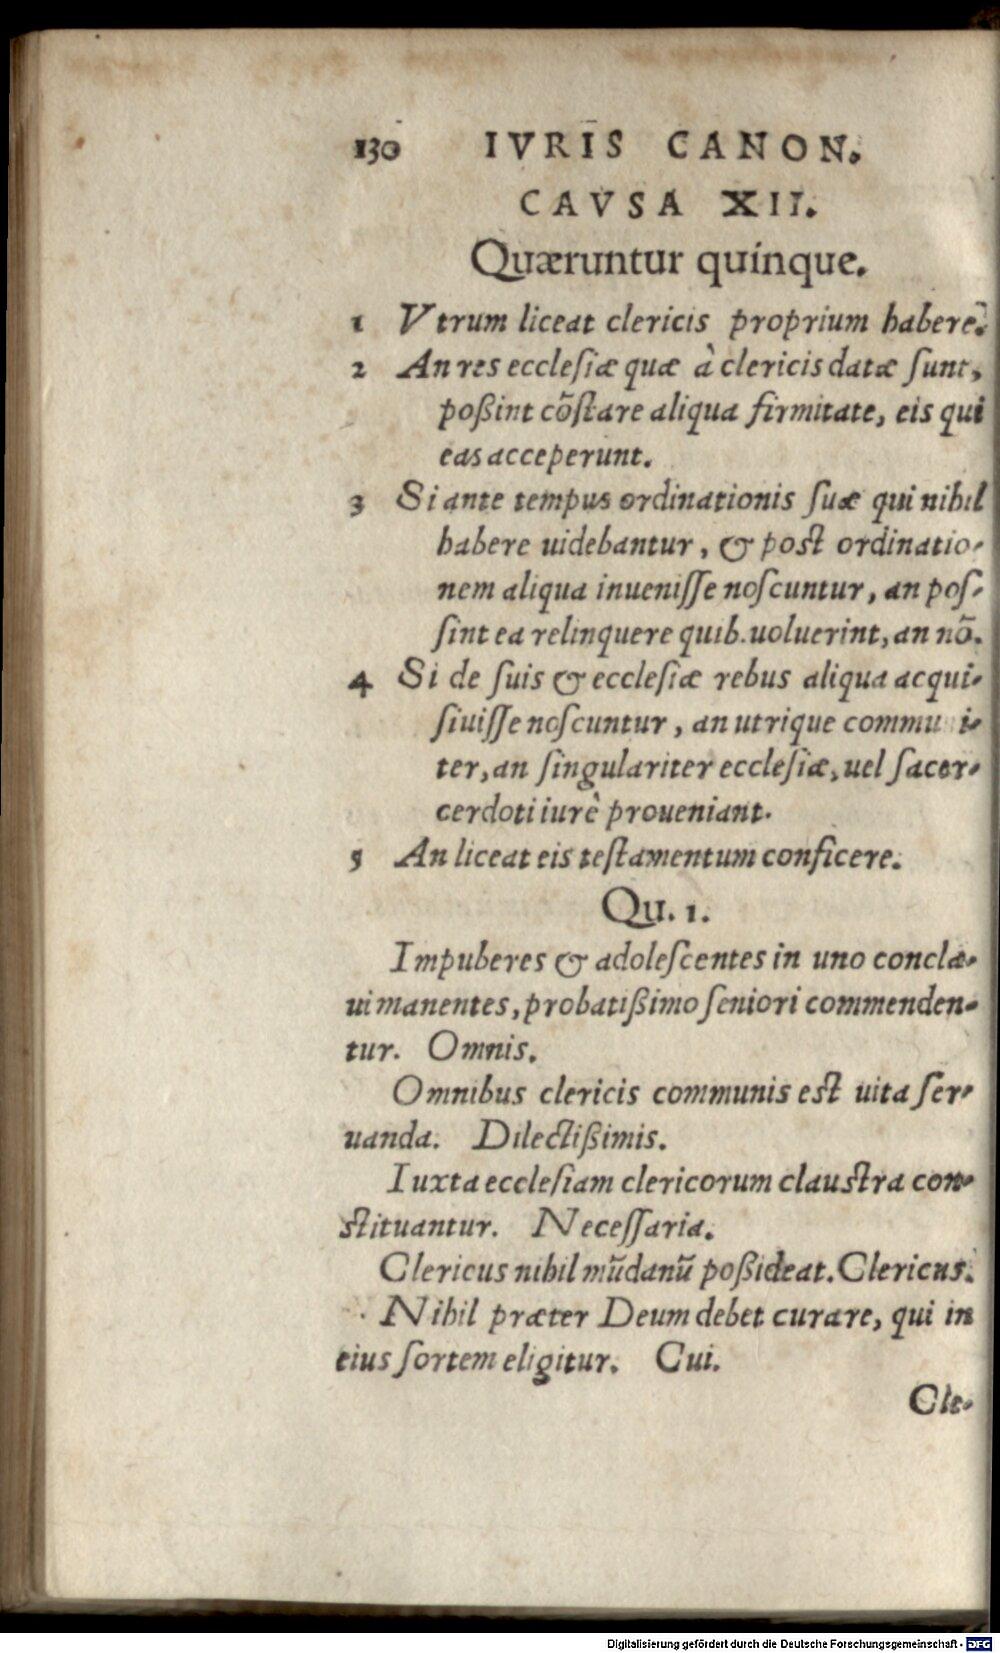 130 IVRIS CANON.
CAVSA XII.
Quæruntur quinque.
1 Vtrum liceat clericis proprium habere.
2 An res ecclesiæ quæ à clericis datæ sunt,
poßint cõstare aliqua firmitate, eis qui
eas acceperunt.
3 Si ante tempus ordinationis suæ qui nihil
habere uidebantur, & post ordinatio-
nem aliqua inuenisse noscuntur, an pos-
sint ea relinquere quib. uoluerint, an nõ.
4 Si de suis & ecclesiæ rebus aliqua acqui-
siuisse noscuntur, an utrique commu i-
ter, an singulariter ecclesiæ, uel sacer-
cerdoti iurè proueniant.
5 An liceat eis testamentum conficere.
Qu. 1.
Impuberes & adolescentes in uno concla-
ui manentes, probatißimo seniori commenden-
tur. Omnis.
Omnibus clericis communis est uita ser-
uanda. Dilectißimis.
Iuxta ecclesiam clericorum claustra con-
stituantur. Necessaria.
Clericus nihil mũdanũ poßideat. Clericus.
Nihil præter Deum debet curare, qui in
eius sortem eligitur. Cui.
Cle-
Digitalisierung gefördert durch die Deutsche Forschungsgemeinschaft - DFG